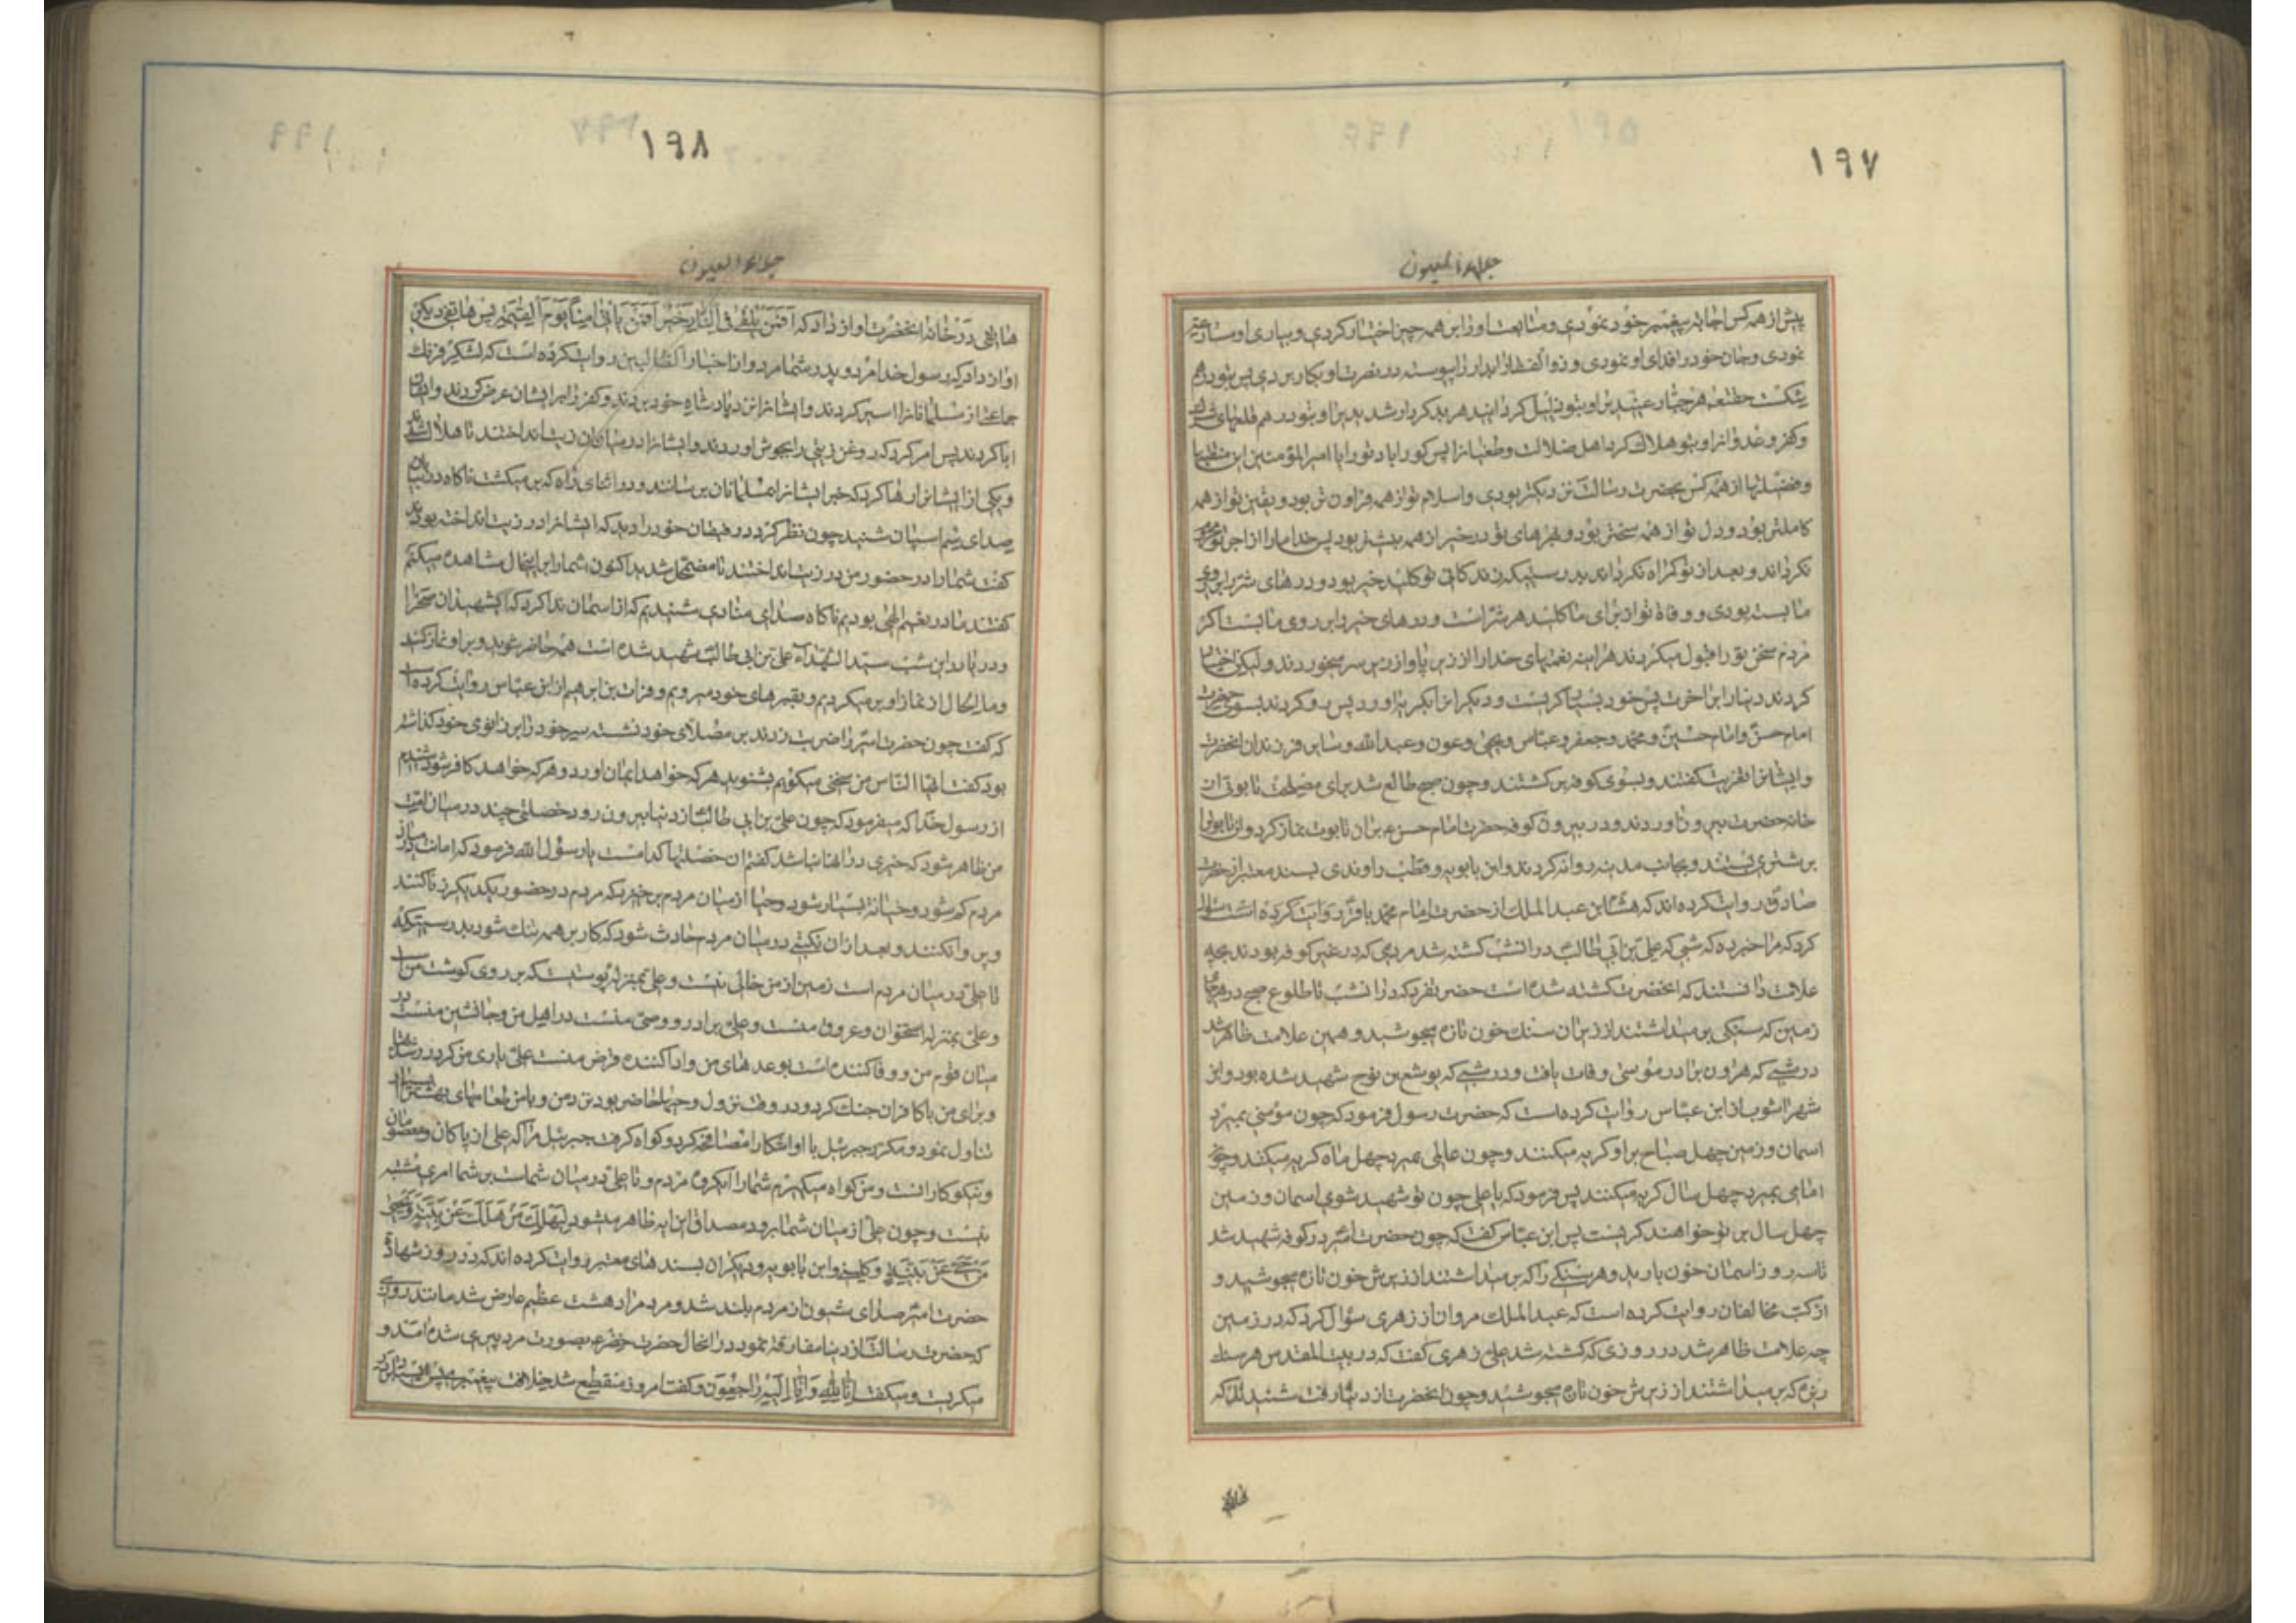 ١٩٧
جلاء العیون
پیش از همه کس اجابت پیغمبر خود نمودی و متابعت او را بر همه چیز اختیار کردی و بیاری او مسارعت
نمودی و جان خود را فدای او نمودی و ذوالفقار آبدار را پیوسته در نصرت او بکار بردی پس بتو درهم
شکست خدا هر جبار عنید را و بتو ذلیل گردانید هر بدکردار شدید را و بتو درهم قلعهای شرک
و کفر و عدوان را و بتو هلاک کرد اهل ضلالت و طغیان را پس گوارا باد تو را یا امیرالمؤمنین این منقبتها
و فضیلتها از همه کس بحضرت رسالت نزدیکتر بودی و اسلام تو از همه فزاون تر بود و یقین تو از همه
کاملتر بود و دل تو از همه سختتر بود و بهرهای تو در خیر از همه بیشتر بود پس خدا ما را از اجر تو محروم
نگرداند و بعد از تو گمراه نگرداند بدرستیکه زندگانی تو کلید خیر بود و درهای شر بر روی
ما بسته بودی و وفاة تو از برای ما کلید هر شرّ است و درهای خیر بر روی ما بست اگر
مردم سخن تو را قبول میکردند هر آینه نعمتهای خدا را از زیر پا و از زبر سر میخوردند و لیکن اختیار
کردند دنیا را بر آخرت پس خود بسیار گریست و دیگران را بگریه آورد پس رو کردند بسوی حضرت
امام حسن و امام حسین و محمد و جعفر و عباس و یحیی و عون و عبدالله و سایر فرزندان آنحضرت
و ایشانرا تعزیت گفتند و بسوی کوفه برگشتند و چون صبح طالع شد برای مصلحت تابوتی از
خانه حضرت بیرون آوردند و در بیرون کوفه حضرت امام حسن ع بر آن تابوت نماز کرد و آن تابوت را
بر شتری بستند و بجانب مدینه روانه کردند و ابن بابویه و قطب راوندی بسند معتبر از حضرت
صادق روایت کرده اند که هشام بن عبدالملک از حضرت امام محمد باقر روایت کرده است سؤال
کرد که مرا خبر ده که شبی که علی بن ابی طالب در آنشب کشته شد مردمی که در غیر کوفه بودند بچه
علامت دانستند که آنحضرت کشته شده است حضرت فرمود که در آنشب تا طلوع صبح در هرجای
زمین که سنگی برمیداشتند از زیر آن سنگ خون تازه میجوشید و همین علامت ظاهر شد
در شبی که هرون برادر موسی وفات یافت و در شبی که یوشع بن نوح شهید شده بود و ابن
شهرآشوب از ابن عباس روایت کرده است که حضرت رسول فرمود که چون مؤمنی بمیرد
آسمان و زمین چهل صباح بر او گریه میکنند و چون عالمی بمیرد چهل ماه گریه میکند و چون
امامی بمیرد چهل سال گریه میکنند پس فرمود که یا علی چون تو شهید شوی آسمان و زمین
چهل سال بر تو خواهند گریست پس ابن عباس گفت که چون حضرت امیر در کوفه شهید شد
تا سه روز از آسمان خون بارید و هر سنگی را که برمیداشتند از زیرش خون تازه میجوشید و
از کتب مخالفان روایت کرده است که عبدالملک مروان از زهری سؤال کرد که در زمین
چه علامت ظاهر شد در روزی که کشته شد علی زهری گفت که در بیت المقدس هر سنگ
ریزه که برمیداشتند از زیرش خون تازه میجوشید و چون آنحضرت از دنیا رفت شنیدند که
١٩٨
جلاء العیون
هاتفی در خانه آنحضرت آواز داد که اَفَمَنْ یُلْقی فِی النّارِ خَیْرٌ اَمْ مَنْ یَأتی امِناً یَوْمَ الْقِیمَةِ پس هاتفی دیگر
آواز داد که رسول خدا مرد و پدر شما مرد و از اخبار الطالبین روایت کرده است که لشکر فرنگ
جماعتی از مسلمانانرا اسیر کردند و ایشانرا نزد پادشاه خود بردند و کفر را بر ایشان عرض کردند و ایشان
ابا کردند پس امر کرد که روغن زیتی را بجوش آوردند و ایشانرا در میان آن زیت انداختند تا هلاک شدند
و یکی از ایشانرا رها کرد که خبر ایشانرا بمسلمانان برساند و در اثنای راه که برمیگشت ناگاه در بیابان
صدای سم اسبان شنید چون نظر کرد رفیقان خود را دید که ایشانرا در زیت انداخته بودند
گفت شما را در حضور من در زیت انداختند تا مضمحل شدید اکنون شما را بر اینحال مشاهده میکنم
گفتند ما در نعیم الهی بودیم ناگاه صدای منادی شنیدیم که از آسمان ندا کرد که ای شهیدان صحرا
و دریا در این شب سید الشهداء علی بن ابی طالب شهید شده است همه حاضر شوید و بر او نماز کنید
و ما الحال از نماز او برمیگردیم و بقبرهای خود میرویم و فرات بن ابرهیم از ابن عباس روایت کرده است
که گفت چون حضرت امیر را ضربت زدند بر مصلای خود نشسته سر خود را بر زانوی خود گذاشته
بود گفت ایها الناس من سخنی میگویم بشنوید هر که خواهد ایمان آورد و هر که خواهد کافر شود شنیدم
از رسول خدا که میفرمود که چون علی بن ابی طالب از دنیا بیرون رود خصلتی چند در میان امت
من ظاهر شود که خیری در آنها نباشد گفتم آن خصلتها کدامست یا رسول الله فرمود که امانت در میان
مردم کم شود و خیانت بسیار شود و حیا از میان مردم برخیزد که مردم در حضور یکدیگر زنا کنند
و پروا نکنند و بعد از آن نکبتی در میان مردم حادث شود که کار بر همه تنگ شود بدرستیکه
تا علی در میان مردم است زمین از من خالی نیست و علی بمنزله پوستست که بر روی گوشت منست
و علی بمنزله استخوان و عروق منست و علی برادر و وصی منست در اهل من و جانشین منست در
میان قوم من و وفا کننده است بوعدهای من و ادا کننده قرض منست علی یاری من کرد در شدتها
و برای من با کافران جنگ کرد و در وقت نزول وحیها حاضر بود نزد من و با من طعامهای بهشت را
تناول نمود و مکرر جبرئیل با او آشکارا مصافحه کرد و گواه گرفت جبرئیل مرا که علی از پاکان و معصومان
و نیکوکارانست و من گواه میگیرم شما را ای گروه مردم و تا علی در میان شماست بر شما امری مشتبه
نیست و چون علی از میان شما برود مصداق این آیه ظاهر میشود لِیَهْلِکَ مَنْ هَلَکَ عَنْ بَیِّنَةٍ وَ یَحْیی
مَنْ حَیَّ عَنْ بَیِّنَةٍ و کلینی و ابن بابویه و دیگران بسندهای معتبر روایت کرده اند که در روز شهادة
حضرت امیر صدای شیون از مردم بلند شد و مردم را دهشت عظیم عارض شد مانند روزی
که حضرت رسالت از دنیا مفارقت نمود در آنحال حضرت خضر ع بصورت مرد پیری شده آمد و
میگریست و میگفت اِنّا لِلّهِ وَ اِنّا اِلَیْهِ راجِعُونَ و گفت امروز منقطع شد خلافت پیغمبر